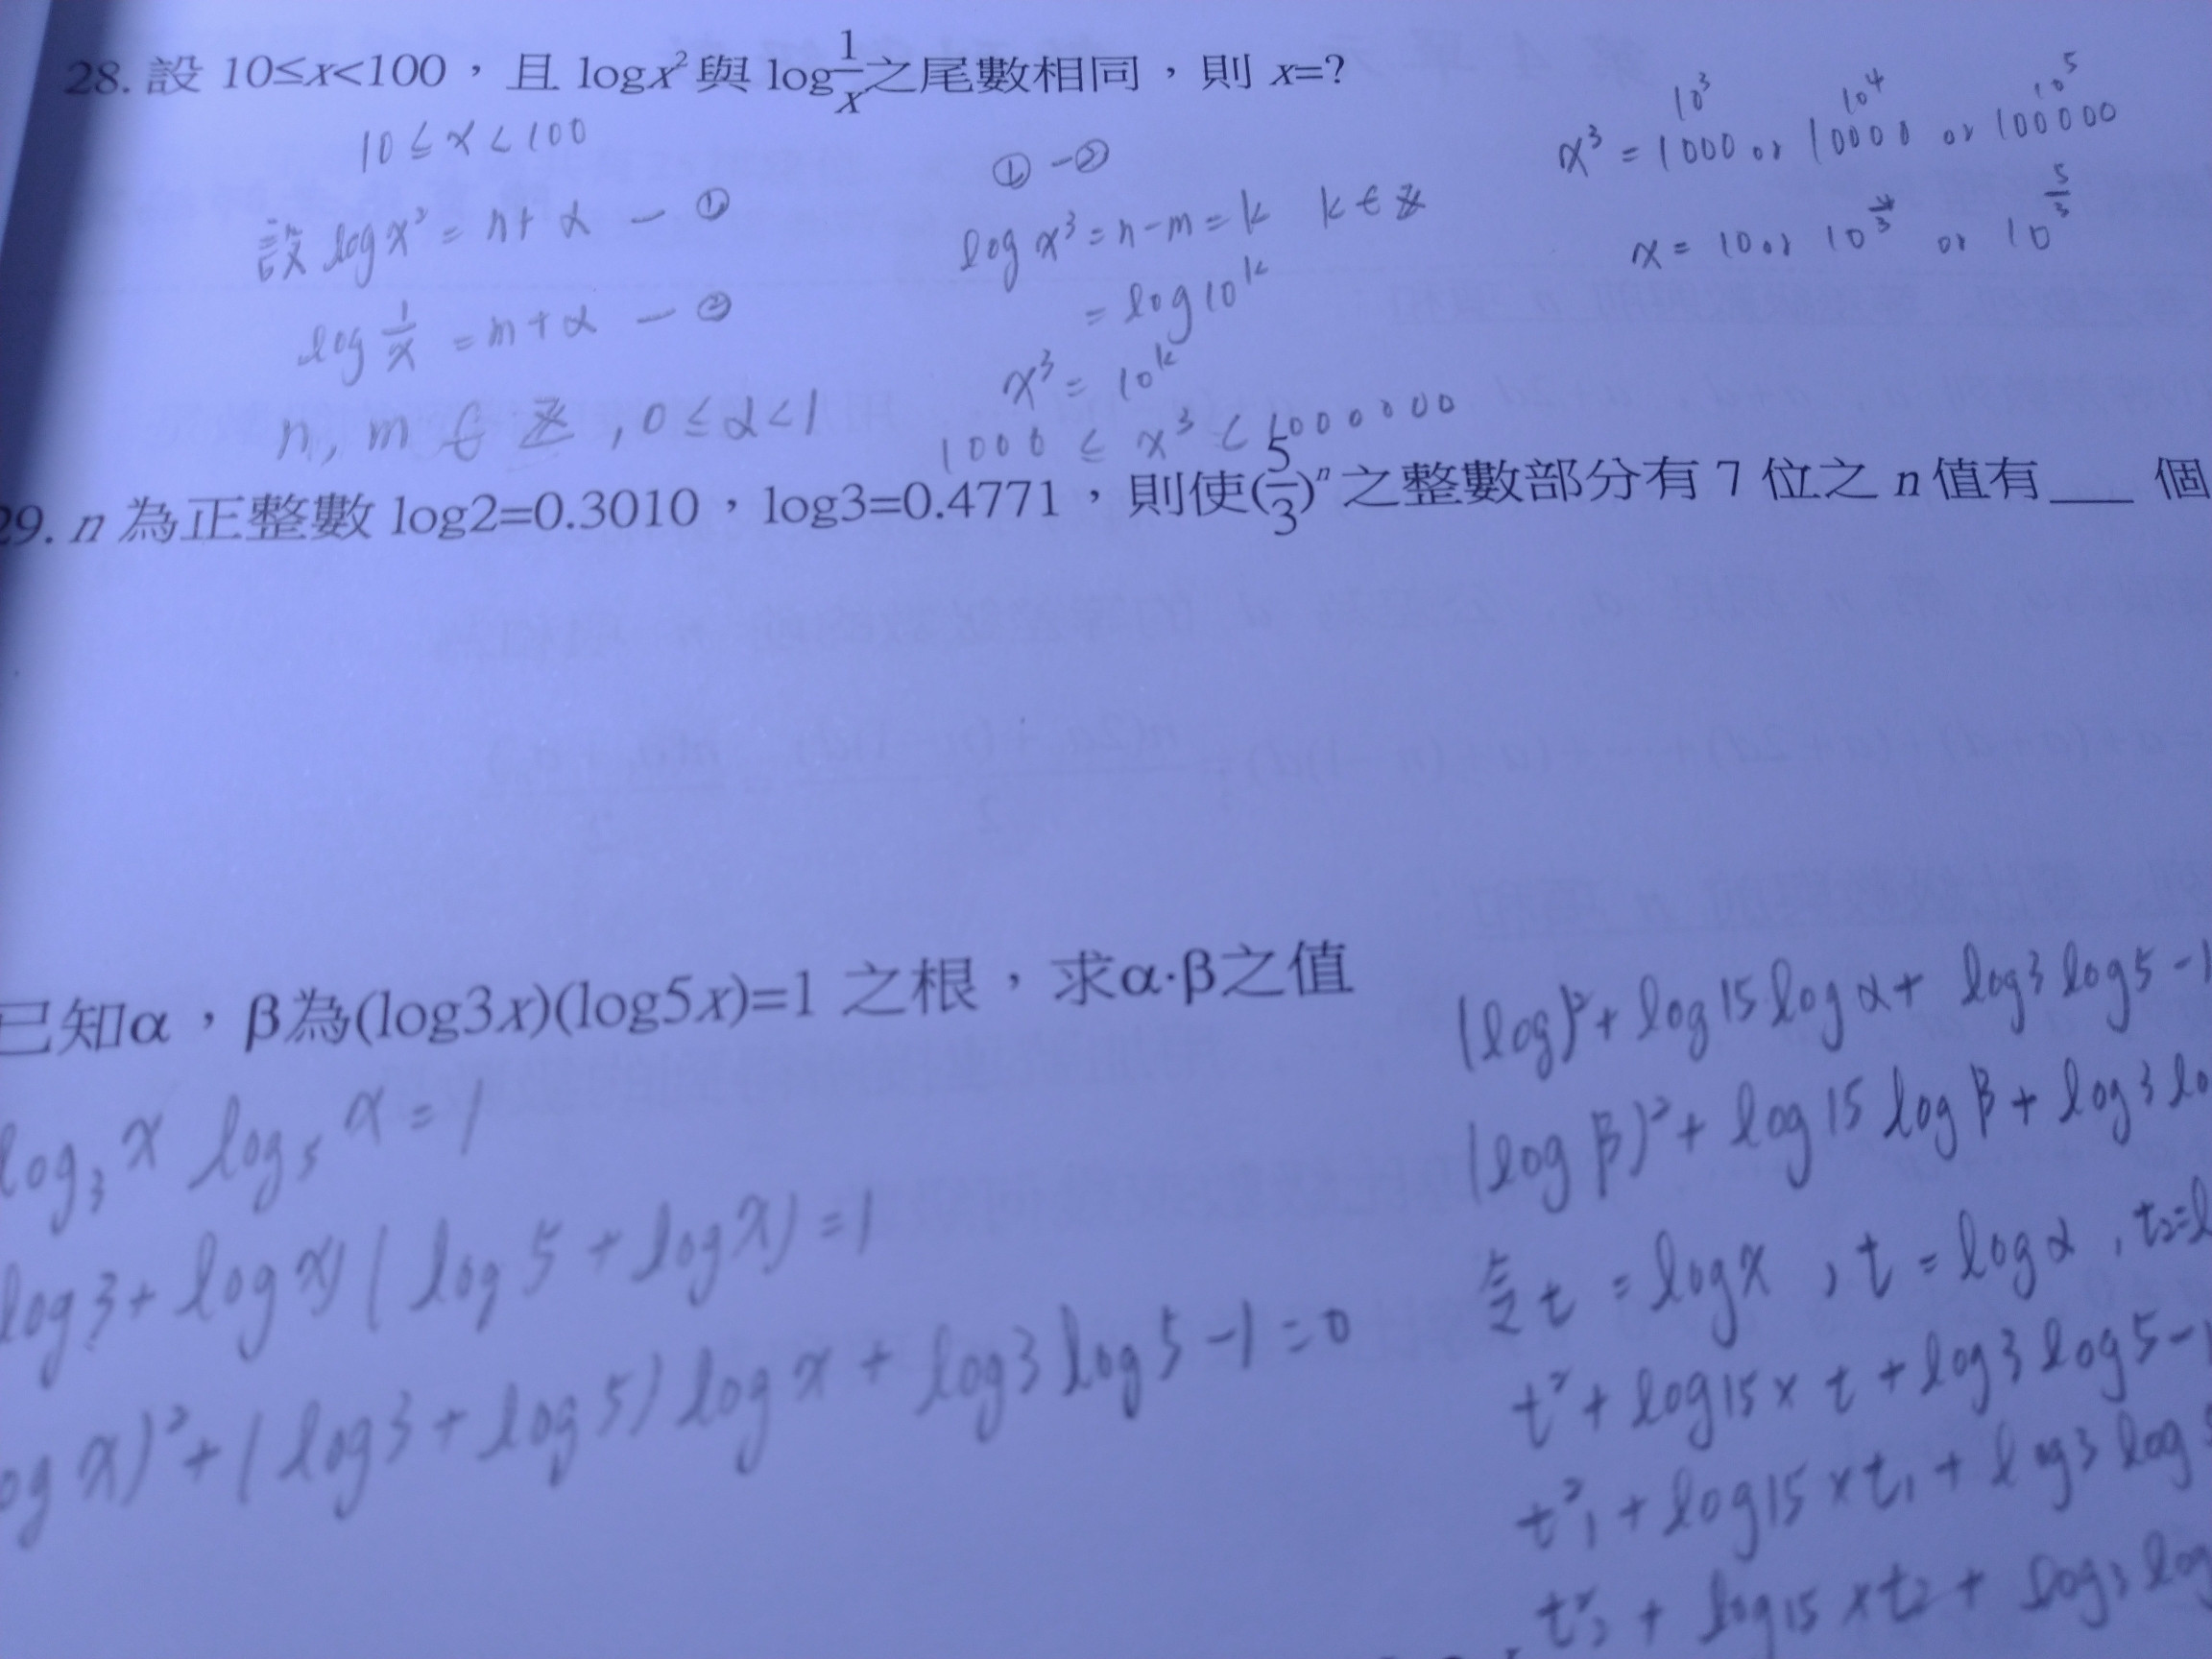 28. 設 10≤x<100，且 logx²與 log1/x之尾數相同，則 x=?
10≤x<100
設 logx²=n+α —①
log 1/x = m+α —②
n, m ∈ Z , 0≤α<1
①-②
log x³=n-m=k k∈Z
=log10^k
x³=10^k
1000 ≤ x³ < 1000000
10³ 10⁴ 10⁵
x³=1000 or 10000 or 100000
x=10 or 10^(4/3) or 10^(5/3)
29. n 為正整數 log2=0.3010，log3=0.4771，則使(5/3)ⁿ之整數部分有 7 位之 n 值有___ 個
已知α，β為(log3x)(log5x)=1 之根，求α·β之值
log₃x log₅x=1
log3+logx)(log5+logx)=1
og x)²+(log3+log5)logx+log3log5-1=0
(log)²+log15logα+log3log5-1
(logβ)²+log15logβ+log3lo
令t=logx，t=logα，t₂=l
t²+log15×t+log3log5-1
t₁²+log15×t₁+log3log5
t₂²+log15×t₂+log3log